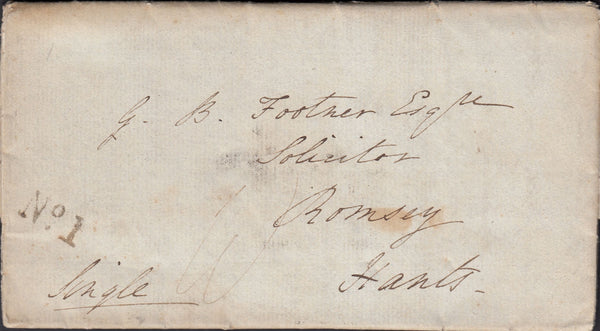 G. B. Footner Esqre
Solicitor
Romsey
Hants.
No. 1
Single